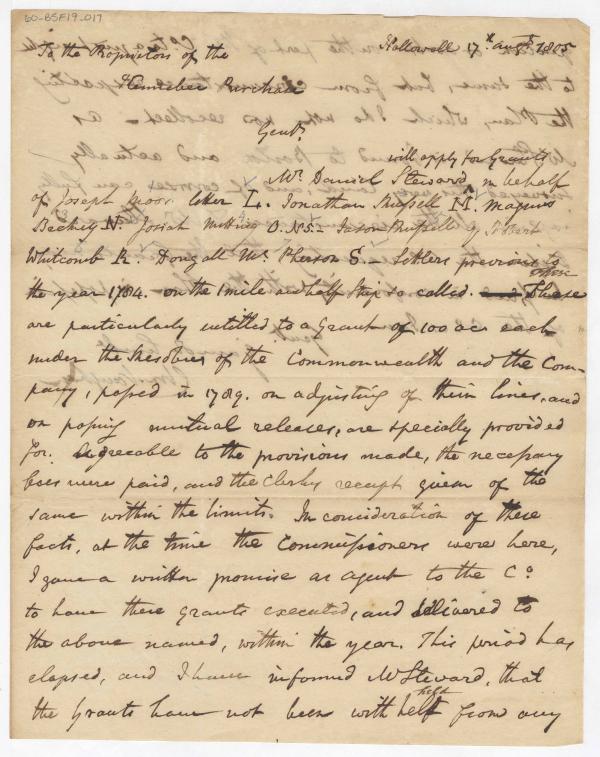 60-BSF19-017
Hallowell 17th augst 1805
To the Proprietors of the
Kennebec Purchase
Gentn.
will apply for Grants
Mr. Daniel Steward, in behalf
of Joseph Moor letter L. Jonathan Russell M. Magnus
Beckey N. Josiah O. N5 - Jason Russell Q Robert
Whitcomb R. Dougall Mc. Pherson S. - Settlers previous to
the year 1784. on the 1 mile and half strip so called. and These
are particularly intitled to a Grant of 100 acs each
under the Resolves of the Commonwealth and the Com-
pany, passed in 1789. on adjusting of their lines, and
on passing mutual releases, are specially provided
for. Agreeable to the provisions made, the necessary
fees were paid, and the Clerks receipt given of the
same within the limits. In consideration of these
facts, at the time the Commissioners were here,
I gave a written promise as agent to the Co.
to have these Grants executed, and delivered to
the above named, within the year. This period has
elapsed, and I have informed Mr Steward, that
held
the Grants have not been with from any